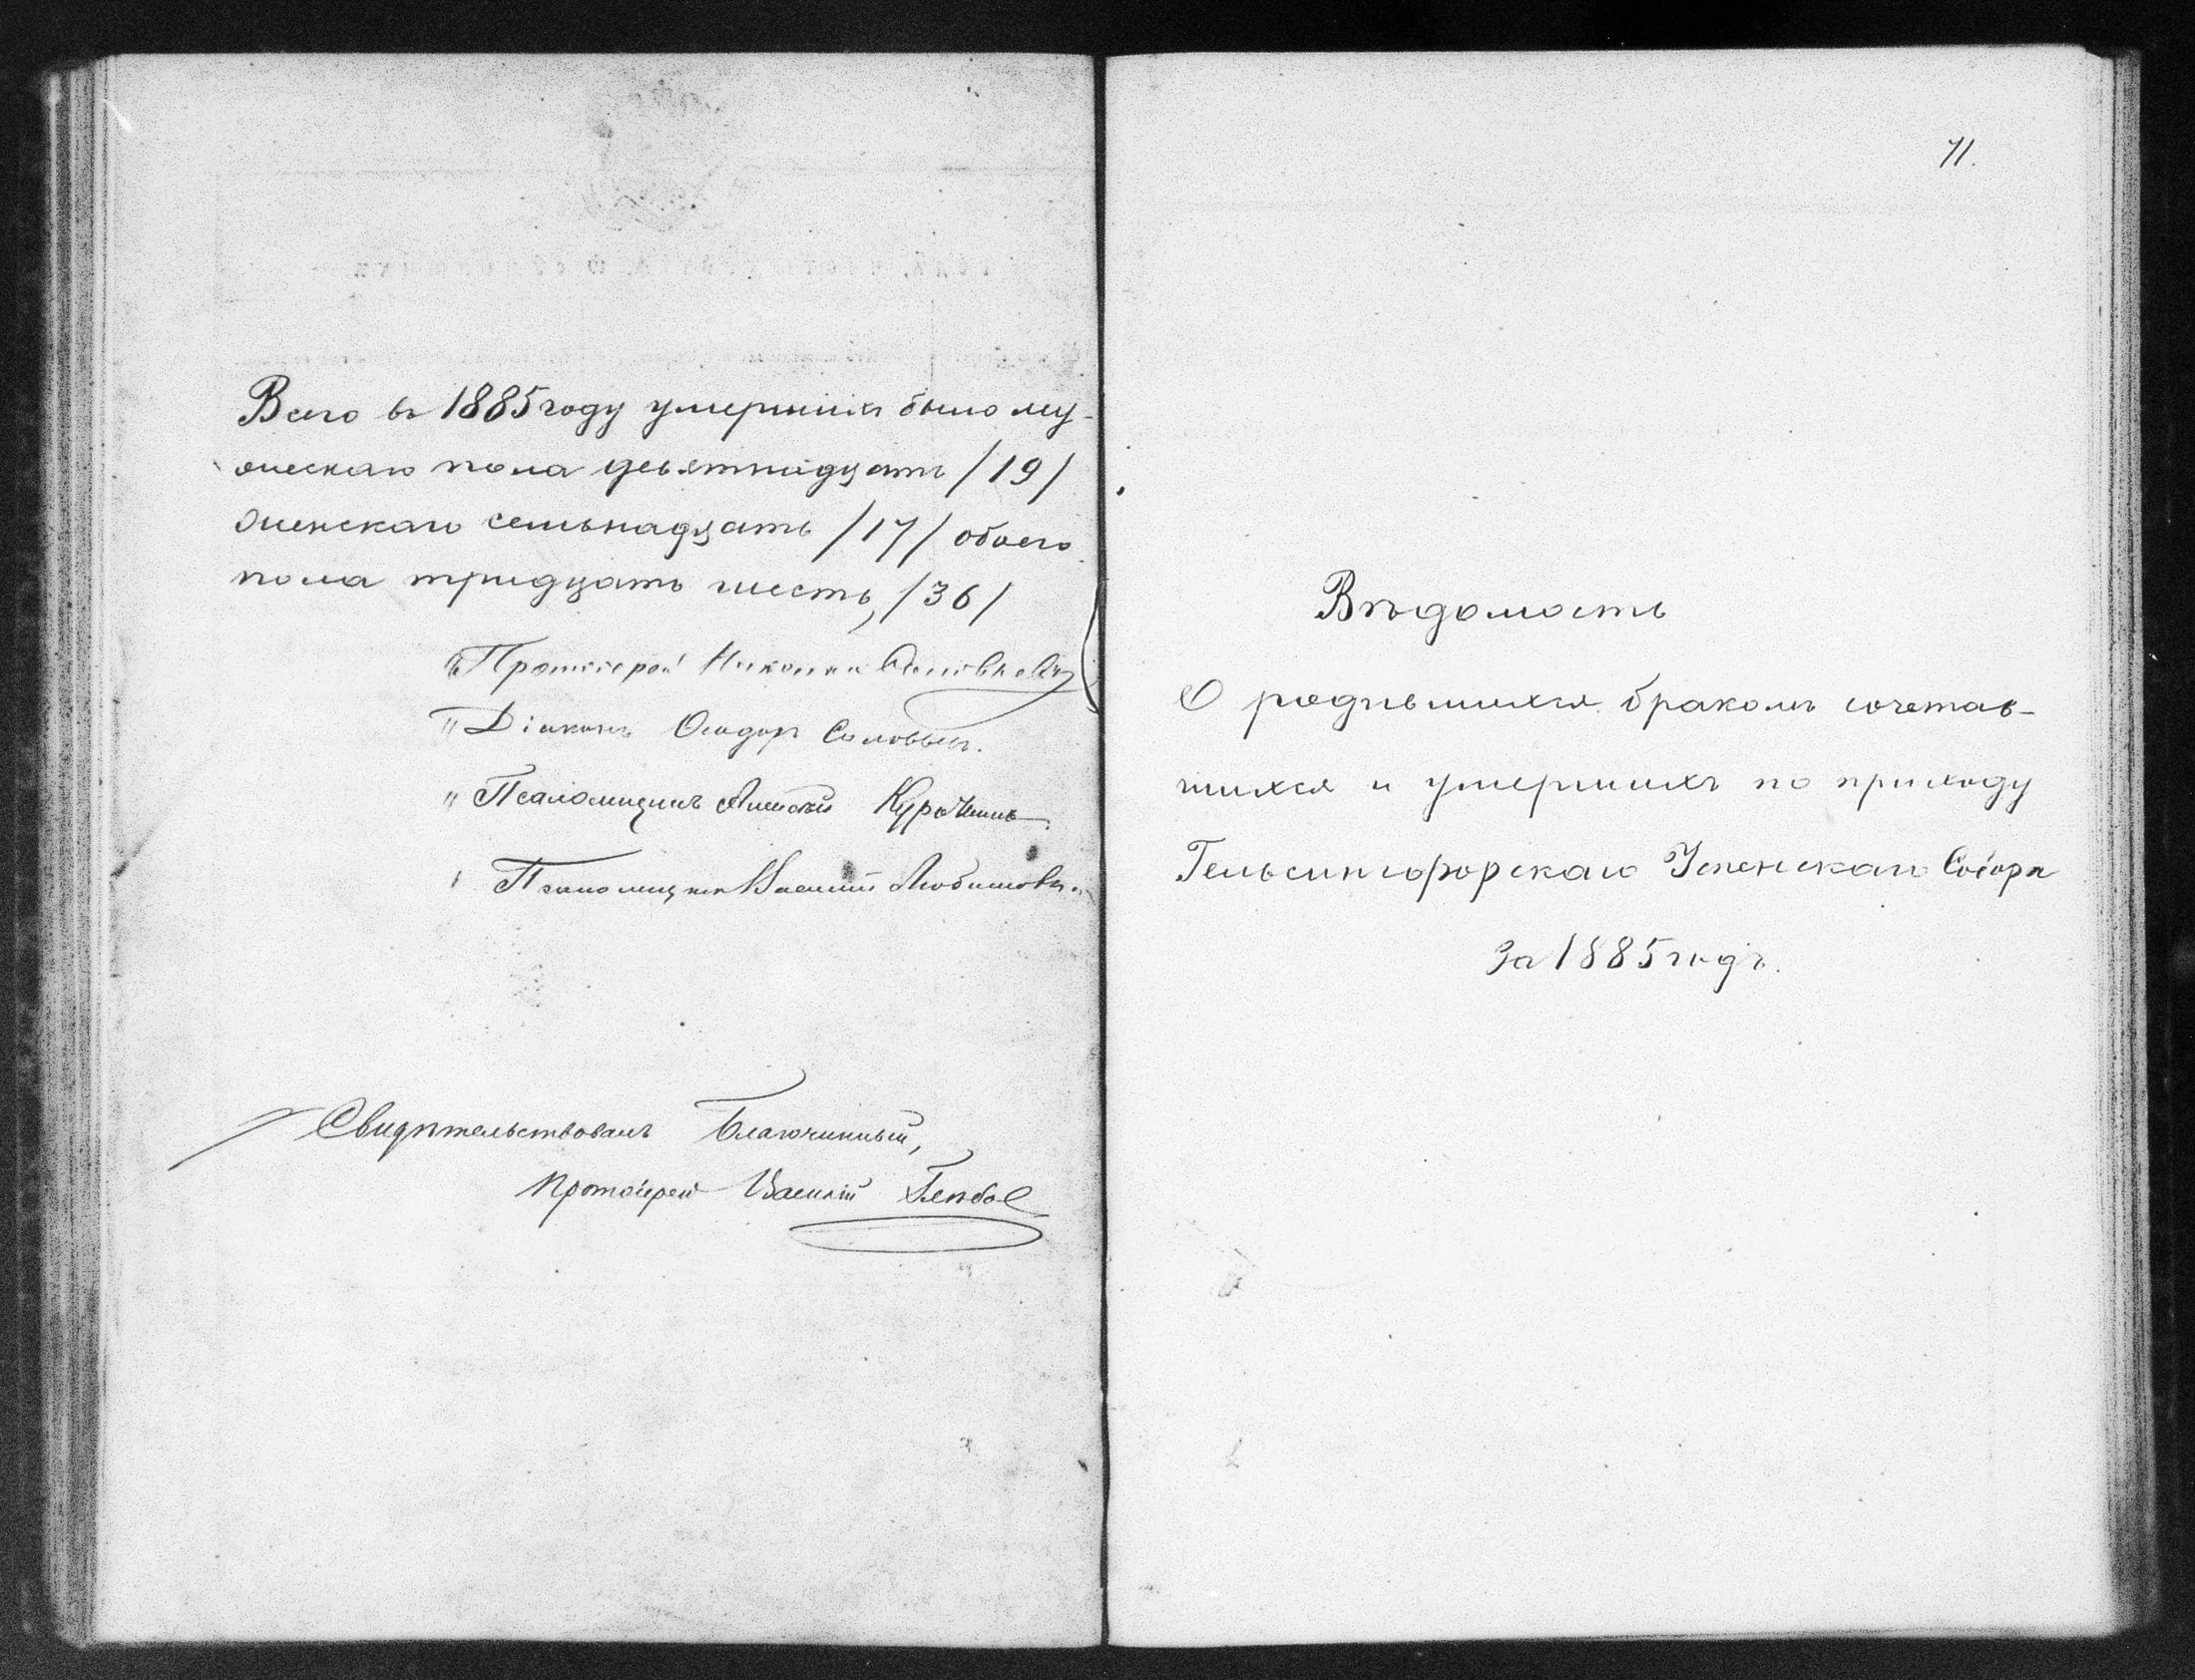 Всего въ 1885 году умершихъ было му-
жескаго пола девятнадцать /19/
женскаго семьнадцать /17/ обоего
пола тридцать шесть, /36/
Протоіерей Николай
" Діаконъ Ѳеодоръ Соловьевъ.
" Псаломщикъ Алексѣй Курочкинъ.
Псаломщикъ Василій Любимовъ.
Свидѣтельствовалъ Благочинный,
Протоіерей Василій
71.
Вѣдомость
О родившихся бракомъ сочетав-
шихся и умершихъ по приходу
Гельсингфорскаго Успенскаго Собора
За 1885 годъ.